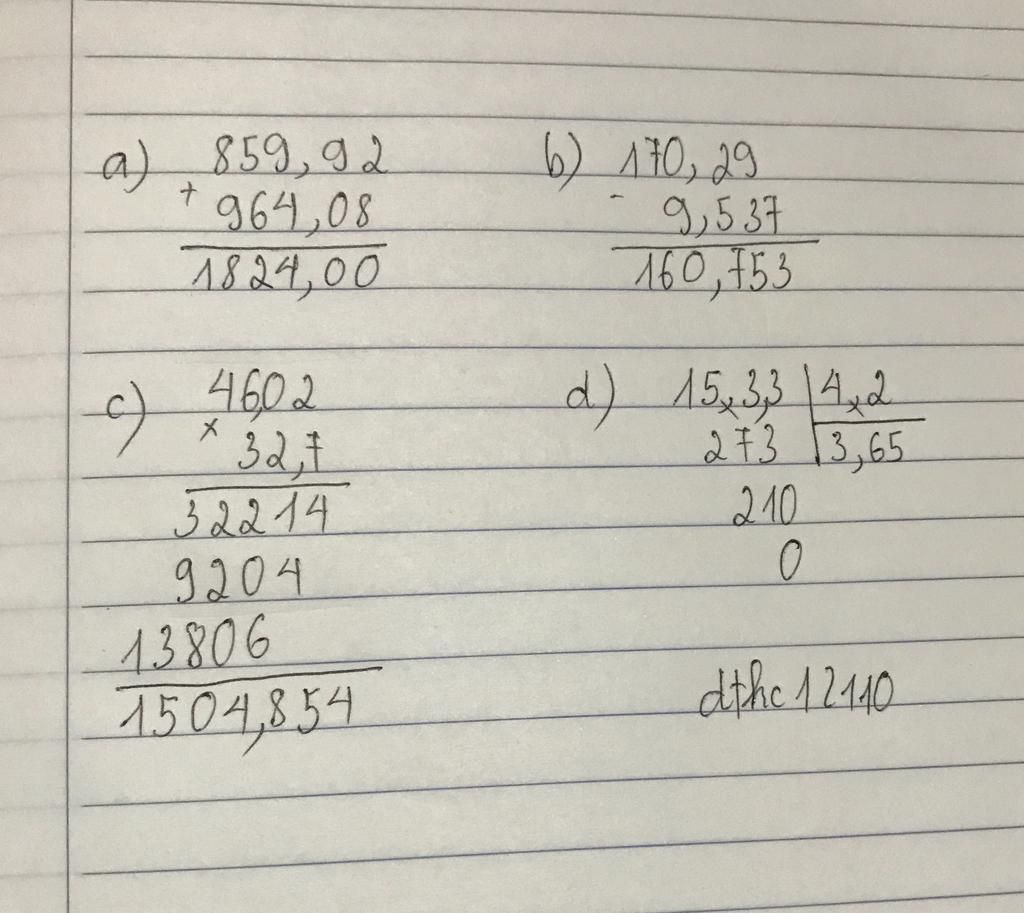 a) 859,92
+ 964,08
1824,00
b) 170,29
- 9,537
160,753
c) 46,02
× 32,7
32214
9204
13806
1504,854
d) 15,3,3 | 4,2
273 | 3,65
210
0
dthc12110